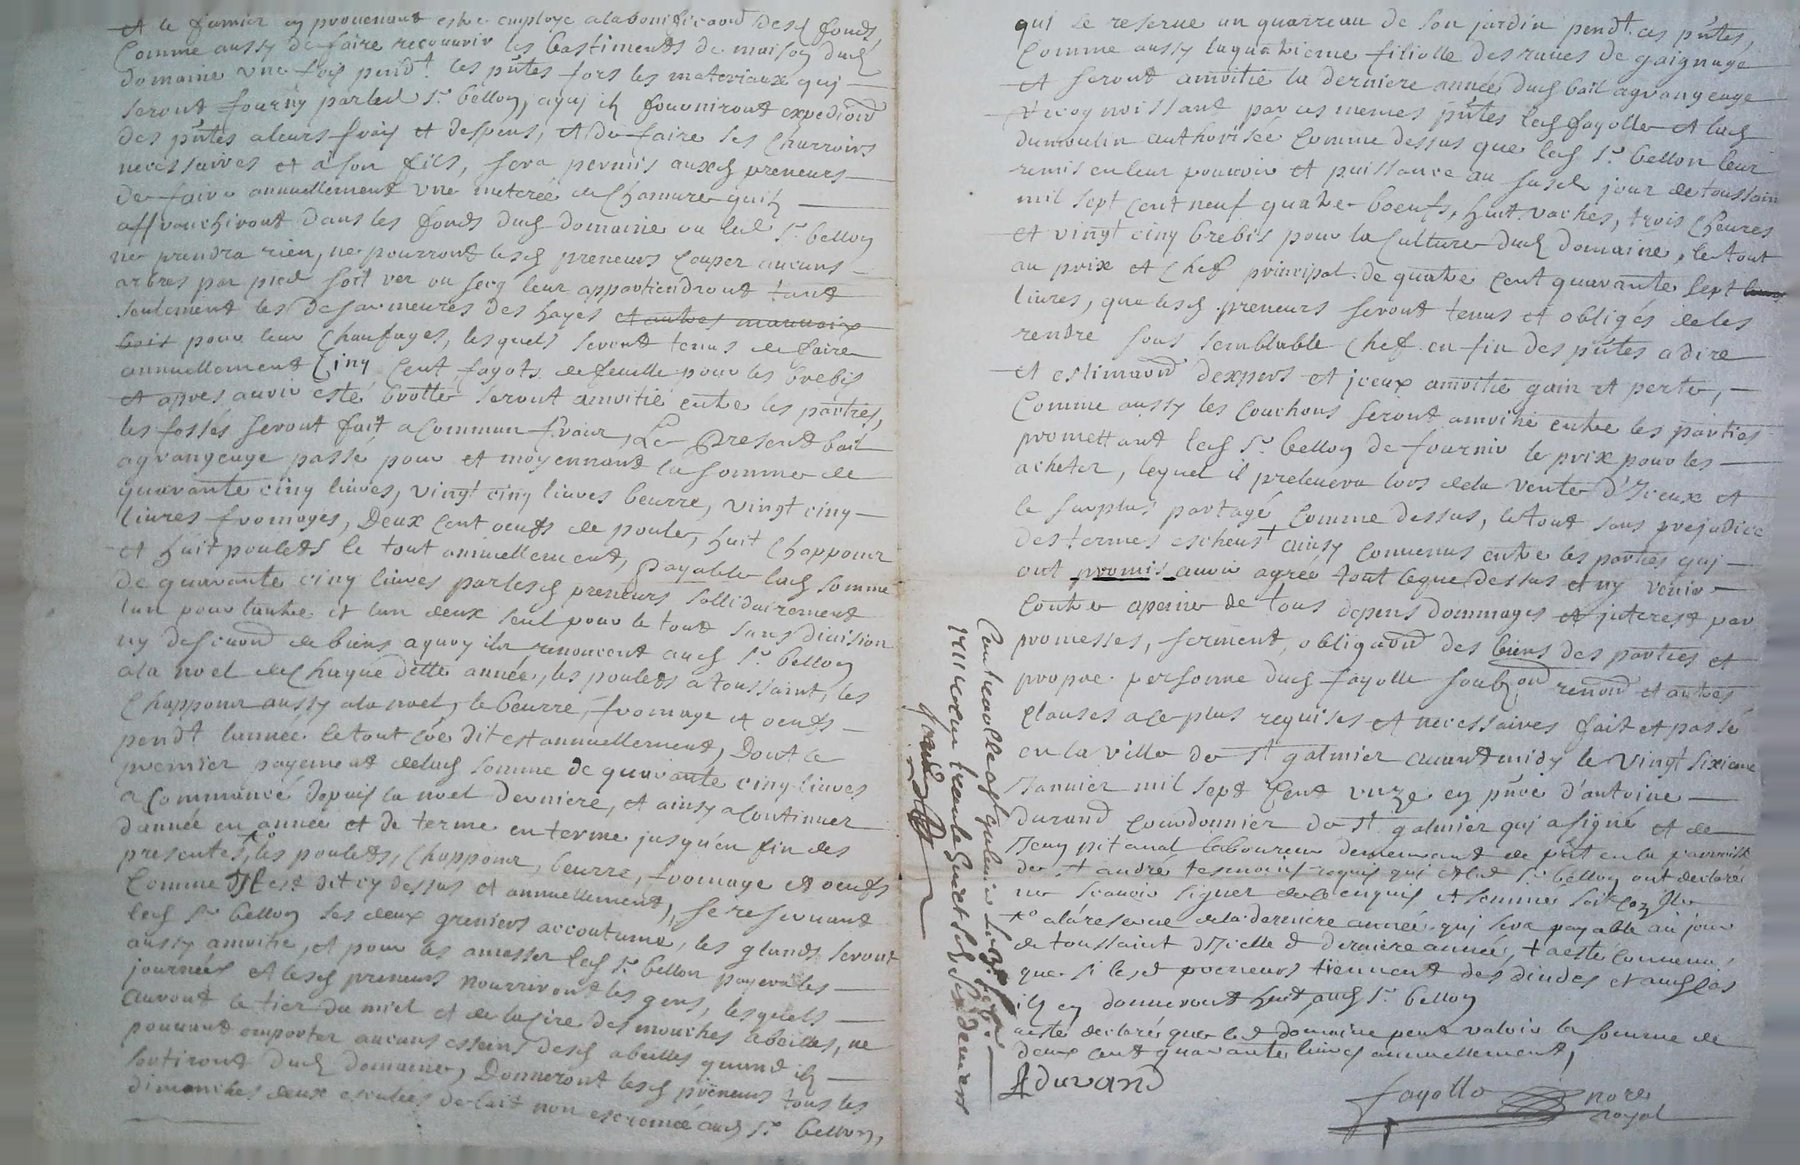 Et le fumier en provenant estre employé a la bonifica͠on desd fonds,
Comme aussy de faire recouvrir les bastiments de maison dud
domaine une fois pend.t les p͠ntes fors les materiaux qui
seront fourny par led s.r bellon, a qui ilz fourniront expedi͠on
des p͠ntes a leurs frais et despens, et de faire les charroirs
necessaires et a son fils, sera permis auxd preneurs
De faire annuellement une meterée de chanure quilz
affranchiront dans les fonds dud domaine ou led s.r bellon
ne prendra rien, ne pourront lesd preneurs couper aucuns
arbres par pied soit ver ou secq leur appartiendront tant
seulement les des hayes et autres mauvaix
bois pour leur chaufages, lesquels seront tenus de faire
annuellement Cinq cent fagots de feuille pour les brebis
et apres avoir esté brotté seront amoitié entre les parties,
les fossés seront fait a commun fraix, Le Present bail
agrangeage passé pour et moyennant la somme de
quarante cinq livres, vingt cinq livres beurre, vingt cinq
livres fromages, Deux cent oeufs de poule, huit chappons
et huit poulets le tout annuellement, payable lad somme
de quarante cinq livres par lesd preneurs sollidairement
lun pour lautre et lun deux seul pour le tout sans division
ny de biens a quoy ilz renoncent aud s.r bellon
a la noel de chaque ditte année, les poulets a toussaint, les
chappons aussy a la noel, le beurre, fromage et oeufs
pend.t lannée le tout c͠oe dit est annuellement, Dont le
premier payement de lad somme de quarante cinq livres
a commencé depuis la noel derniere, et ainsy a continuer
dannée en année et de terme en terme jusqu'en fin des
presentes, les poulets, chappons, beurre, fromage et oeufs
Comme Il est dit cy dessus et annuellement, se reservant
led s.r bellon les deux greniers accoutumé, les glands seront
aussy amoitié, et pour les amasser led s.r bellon payera les
journées et lesd preneurs nourriront les gens, lesquels
auront le tier du miel et de la cire des mouches abeilles, ne
pouvant emporter aucuns essains desd abeilles quand ilz
sortiront dud domaine, Donneront lesd preneurs tous les
dimanches deux de lait non escremé aud s.r bellon,
qui se reserve un quarreau de son jardin pend.t ces p͠ntes,
Comme aussy la quatrieme filiolle des raves de gaignage
et seront amoitié la derniere année dud bail agrangeage
recognoissant par ces mesmes p͠ntes led fayolle et lad
dumoulin authorisée comme dessus que led s.r bellon leur
remis en leur pouvoir et puissance au susd jour de toussain
mil sept cent neuf quatre boeufs, huit vaches, trois chevres
et vingt cinq brebis pour la culture dud domaine, le tout
au prix et chef principal de quatre cent quarante sept
livres, que lesd preneurs seront tenus et obligés de les
rendre sous semblable chef en fin des p͠ntes a dire
et estima͠on dexpers et iceux amoitié gain et perte,
Comme aussy les couchons seront amoitié entre les parties
promettant led s.r bellon de fournir le prix pour les
acheter, lequel il prelevera lors de la vente d'Iceux et
le surplus partagé comme dessus, le tout sans prejudice
des termes escheus + ainsy convenus entre les parties qui
ont promis avoir agreé tout ce que dessus et ny venir
contre apeine de tous depens dommages et interest par
promesses, serment, obliga͠on des biens des parties et
propre personne dud fayolle renon͠on et autres
clauses a ce plus requises et necessaires fait et passé
en la ville de s.t galmier avant midy le vingt sixieme
Janvier mil sept cent unze en p͠nce d'antoine
Durand courdonnier de s.t galmier qui a signé et de
Jean pitaval laboureur demeurant de p͠nt en la parroisse
de s.t andré tesmoins requis qui et led s.r bellon ont declaré
ne scavoir signer de ce enquis et sommé
a la reserve de la derniere année qui sera payable au jour
de toussaint d'Icelle d derniere année, + a esté convenu
que si lesd preneurs tiennent des dindes
ils en donneront huit aud s.r bellon
a esté declaré que led domaine peut valoir la somme de
deux cent quarante livres annuellement,
A durand
fayolle no.re royal
Controollé a s.t galmier le
1711 receu